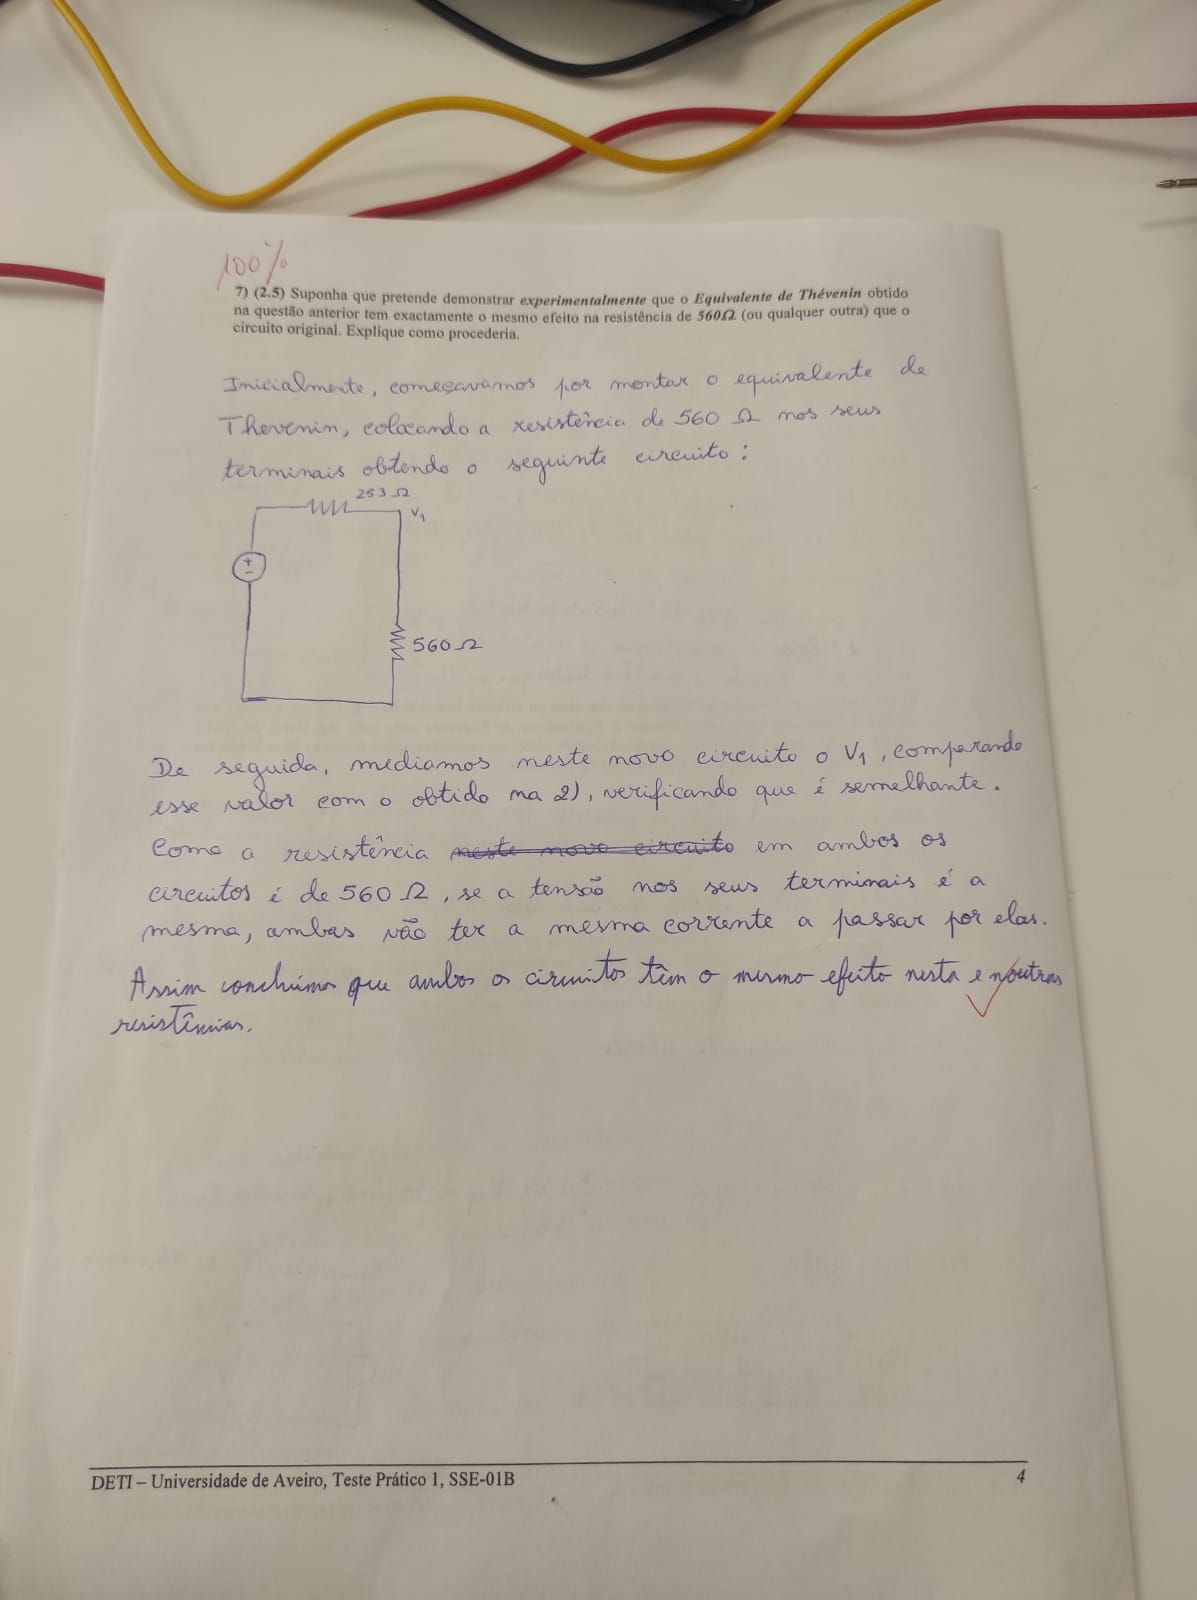 100%
7) (2.5) Suponha que pretende demonstrar experimentalmente que o Equivalente de Thévenin obtido
na questão anterior tem exactamente o mesmo efeito na resistência de 560Ω. (ou qualquer outra) que o
circuito original. Explique como procederia.
Inicialmente, começavamos por montar o equivalente de
Thevenin, colocando a resistência de 560 Ω nos seus
terminais obtendo o seguinte circuito:
253 Ω
V1
+
-
560 Ω
De seguida, mediamos neste novo circuito o V1, comparando
esse valor com o obtido na 2), verificando que é semelhante.
Como a resistência neste novo circuito em ambos os
circuitos é de 560 Ω, se a tensão nos seus terminais é a
mesma, ambas vão ter a mesma corrente a passar por elas.
Assim concluímos que ambos os circuitos têm o mesmo efeito nesta e noutras
resistências.
DETI – Universidade de Aveiro, Teste Prático 1, SSE-01B
4